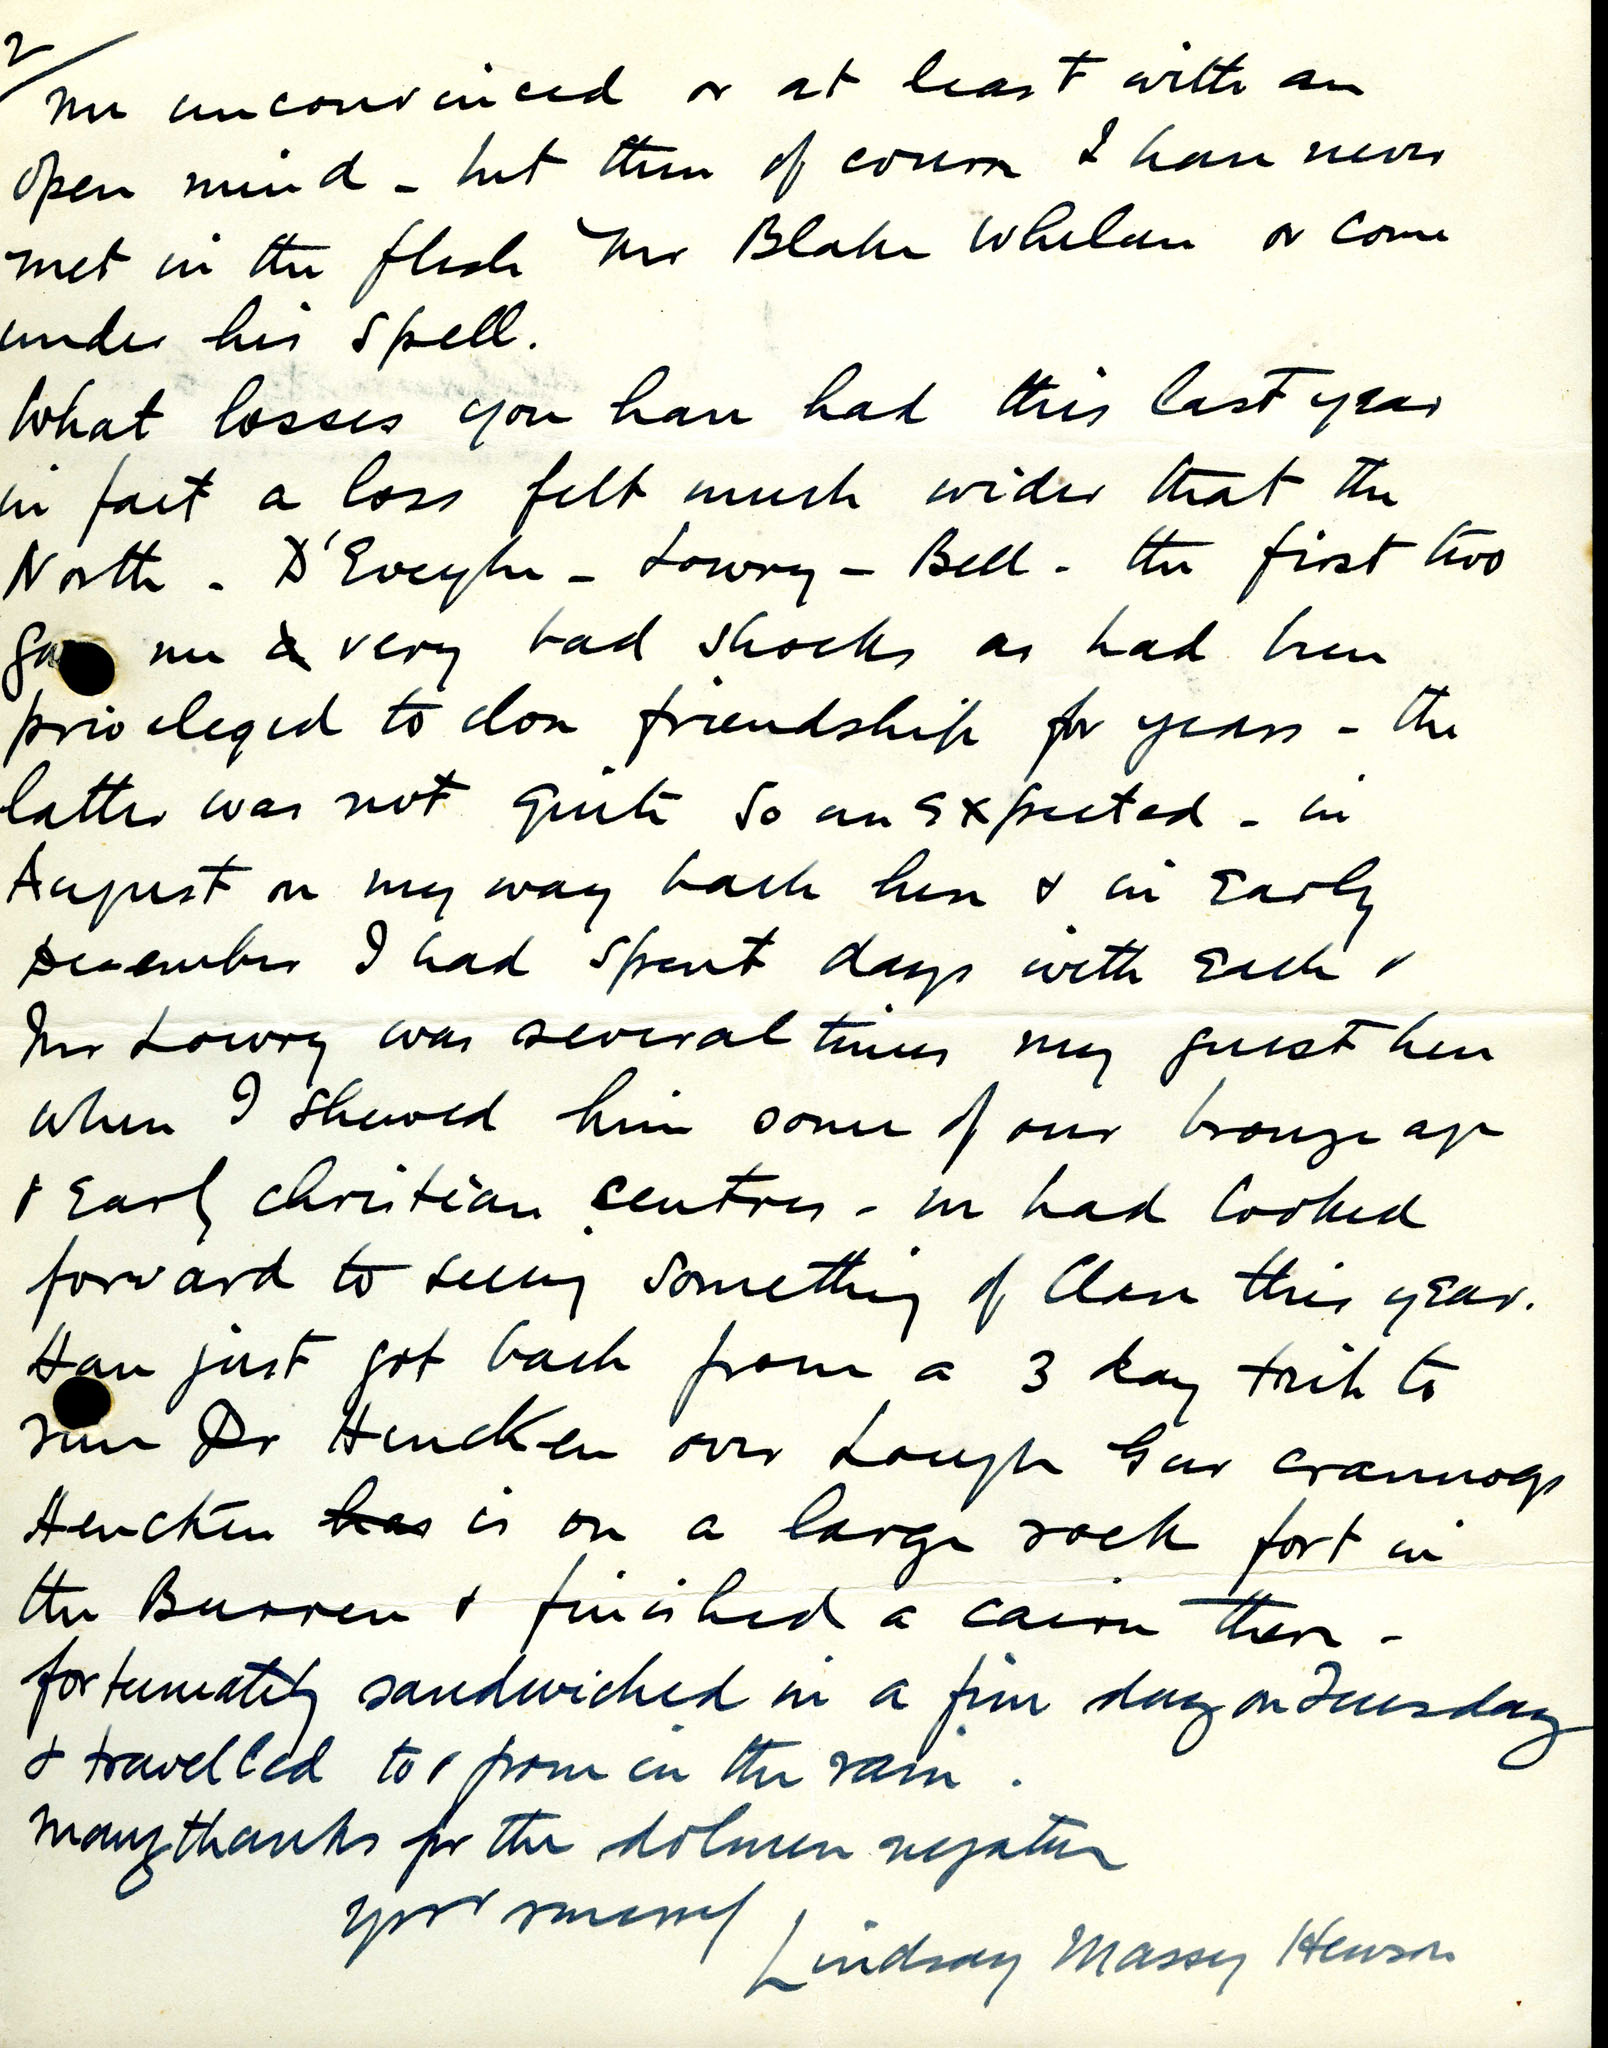 2/
me unconvinced or at least with an
open mind - but then of course I have never
met in the flesh Mr Blake Whelan or come
under his spell.
What losses you have had this last year
in fact a loss felt much wider that the
North - D'Evelyn - Lowry - Bell - the first two
gave me very bad shocks as had been
privileged to close friendship for years - the
latter was not quite so unexpected - in
August on my way back here & in early
December I had spent days with each &
Mr Lowry was several times my guest here
when I shewed him some of our bronze age
& Early christian centres - we had looked
forward to seeing something of Clare this year.
Have just got back from a 3 day trip to
run Dr Hencken over Lough Gur crannogs
Hencken has is on a large rock fort in
the Burren & finished a cairn there -
fortunately sandwiched in a fine day on Tuesday
& travelled to & from in the rain.
Many thanks for the dolmen negative
yrs sincerely
Lindsay Massey Hewson